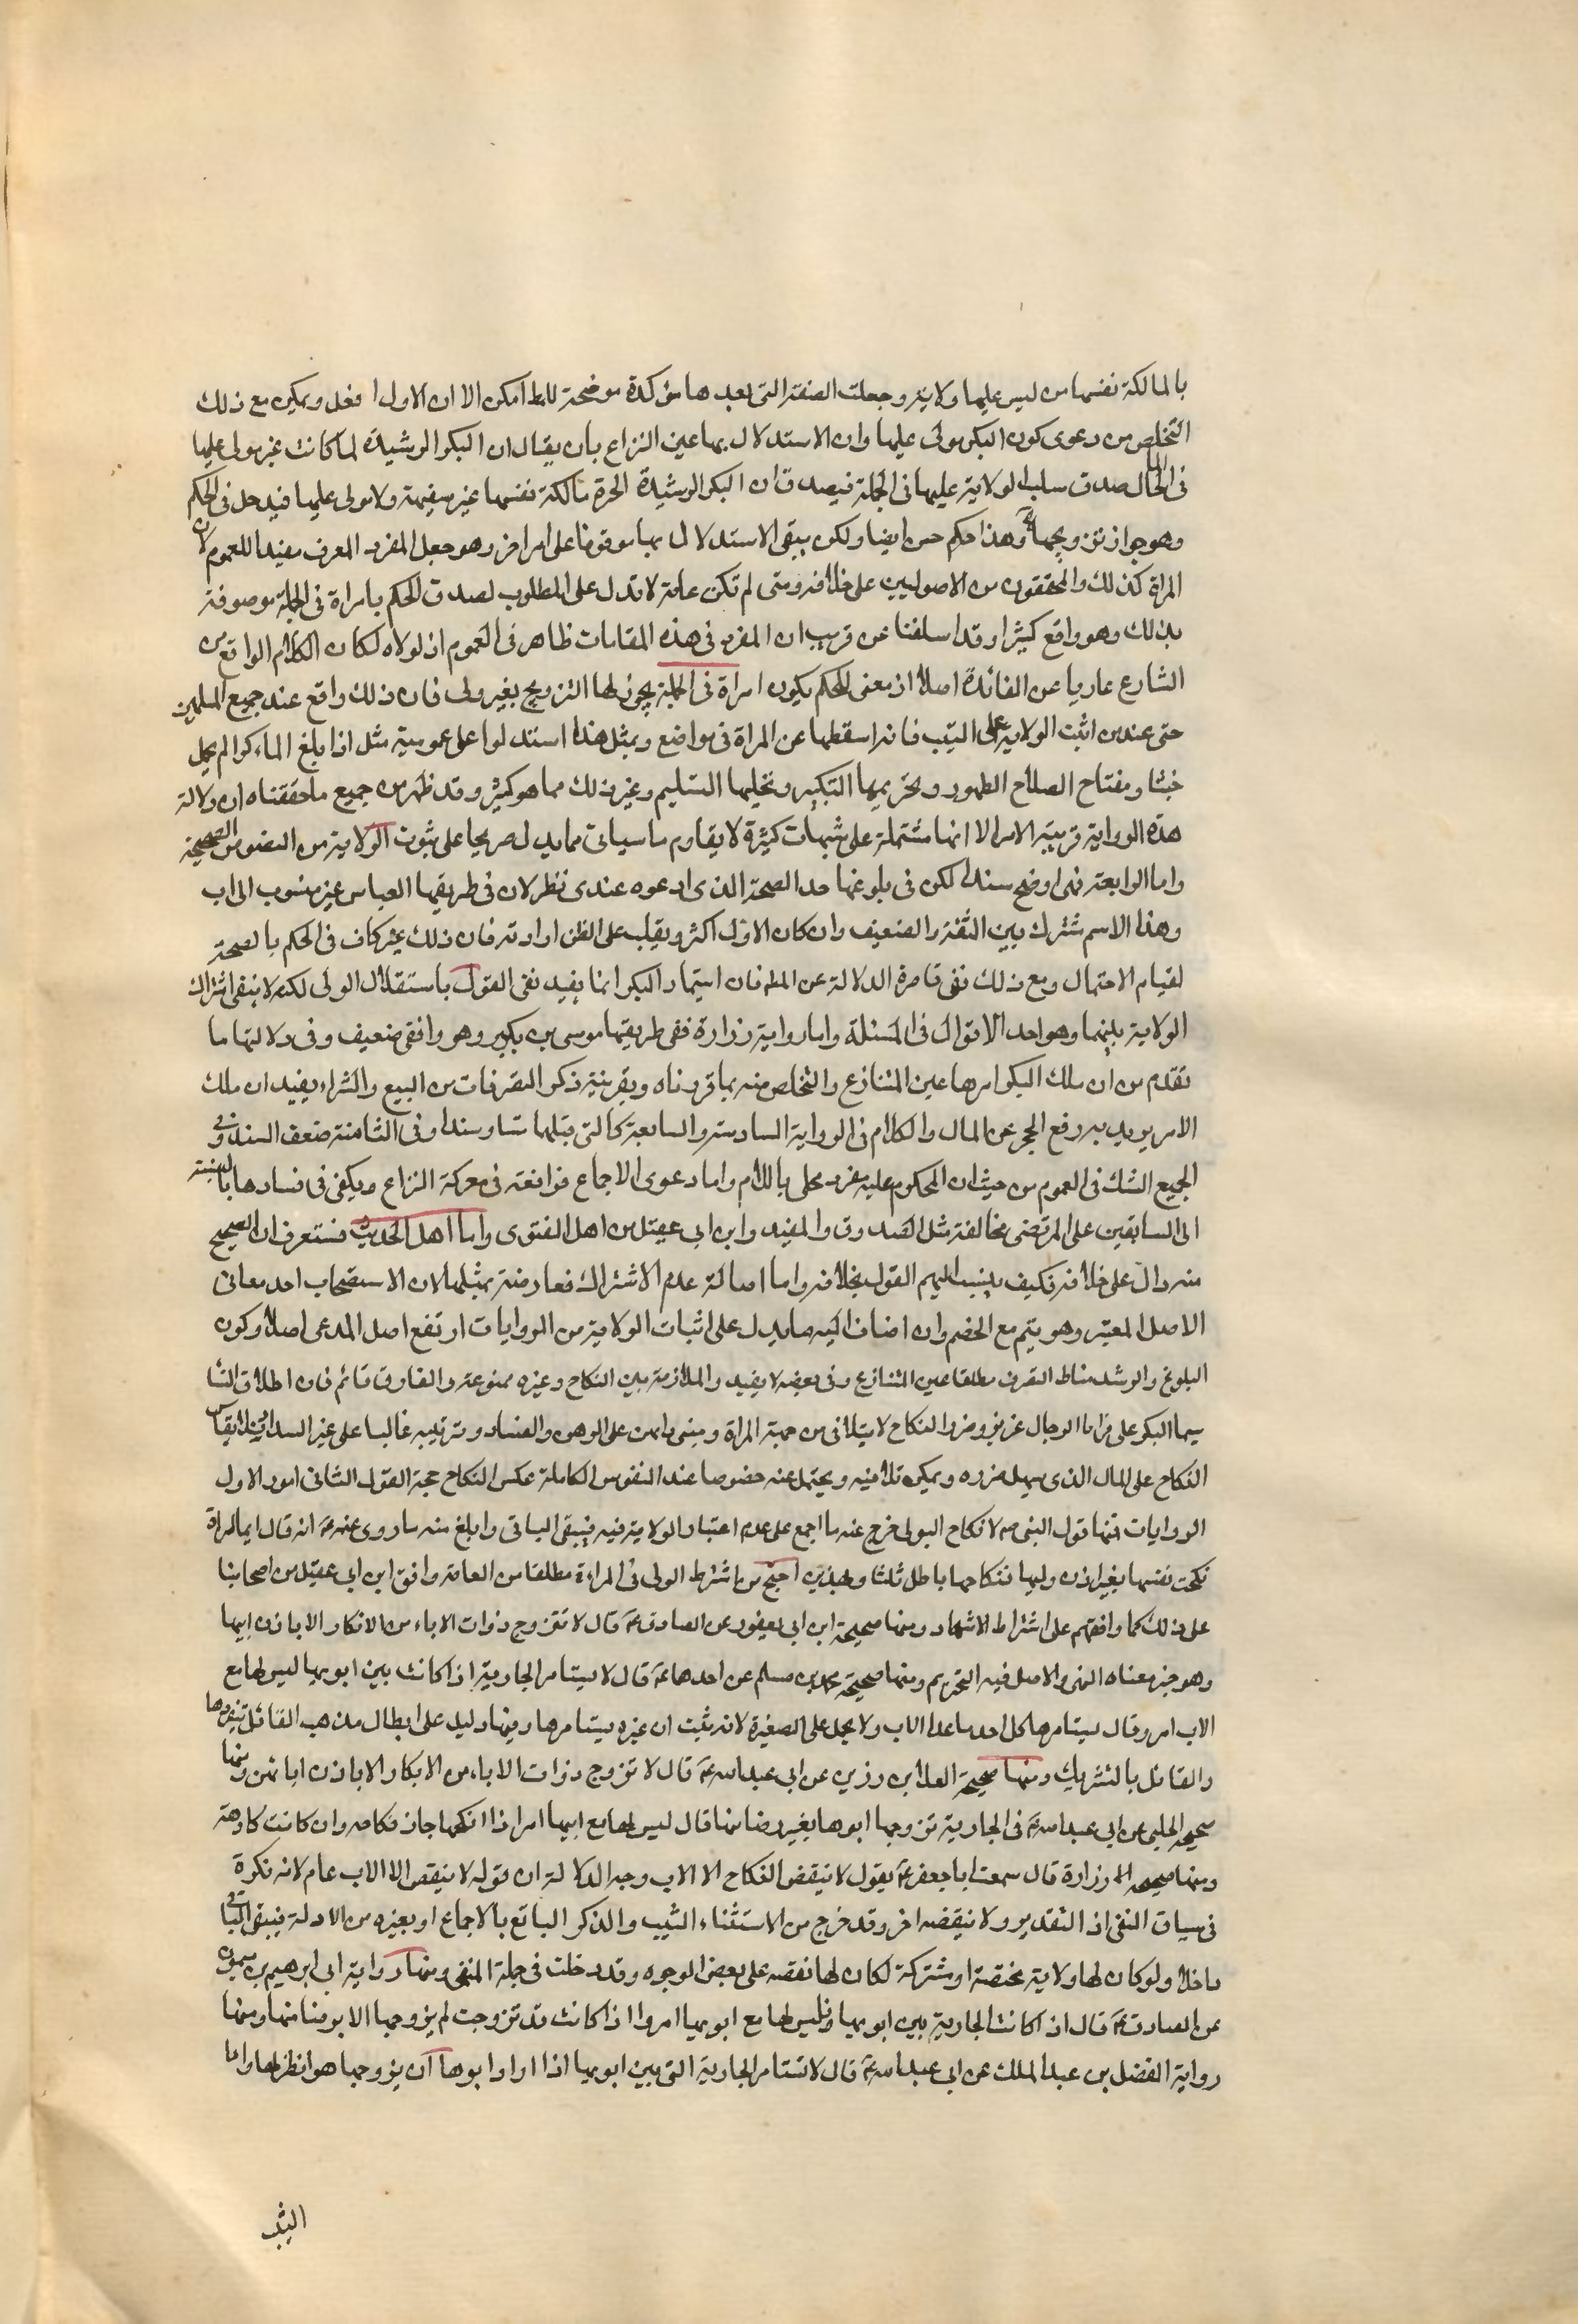 بالمالكة نفسها من ليس عليها ولاية وجعلت الصفة التى بعدها مؤكدة موضحة للمط امكن الا ان الاول افعل ويمكن مع ذلك
التخلص من دعوى كون البكر مولى عليها وان الاستدلال بها عين النزاع بان يقال ان البكر الرشيدة لما كانت غير مولى عليها
فى المال صدق سلب الولاية عليها فى الجملة فيصدق ان البكر الرشيدة الحرة مالكة نفسها غير سفيهة ولا مولى عليها فيدخل فى الحكم
وهو جواز تزويجها وهذا حكم حسن ايضا ولكن يبقى الاستدلال بها موقوفا على امر اخر وهو جعل المفرد المعرف مفيدا للعموم لان
المراة كذلك والمحققون من الاصوليين على خلافه ومتى لم تكن عامة لا تدل على المطلوب لصدق الحكم بامراة فى الجملة موصوفة
بذلك وهو واقع كثيرا وقد اسلفنا عن قريب ان المفرد فى هذه المقامات ظاهر فى العموم اذ لولاه لكان الكلام الواقع من
الشارع عاريا عن الفائدة اصلا اذ معنى للحكم بكون امراة فى الجملة يجوز لها التزويج بغير ولى فان ذلك واقع عند جميع المسلمين
حتى عند من اثبت الولاية على الثيب فانه اسقطها عن المراة فى مواضع وبمثل هذا استدلوا على عمومية مثل اذا بلغ الماء كرا لم يحمل
خبثا ومفتاح الصلاح الطهور وتحريمها التكبير وتحليلها التسليم وغير ذلك مما هو كثير وقد ظهر من جميع ما حققناه ان دلالة
هذه الرواية قريبة الامر الا انها مشتملة على شبهات كثيرة لا يقاوم ما سياتى مما يدل صريحا على ثبوت الولاية من النصوص الصحيحة
واما الرابعة فهى اوضح سندا لكن فى بلوغها حد الصحة الذى ادعوه عندى نظر لان فى طريقها العباس غير منسوب الى اب
وهذا الاسم مشترك بين الثقة والضعيف وان كان الاول اكثر ويغلب على الظن ارادته فان ذلك غير كاف فى الحكم بالصحة
لقيام الاحتمال ومع ذلك فهى قاصرة الدلالة عن المط فان استيمار البكر انما يفيد نفى القول باستقلال الولى لكنه لا ينفى اشتراك
الولاية بينهما وهو احد الاقوال فى المسئلة واما رواية زرارة ففى طريقها موسى بن بكير وهو واقفى ضعيف وفى دلالتها ما
تقدم من ان ملك البكر امرها عين المتنازع والتخلص منه بما قررناه وبقرينة ذكر التصرفات من البيع والشراء يفيد ان ملك
الامر يريد به رفع الحجر عن المال والكلام فى الرواية السادسة والسابعة كالتى قبلها متنا وسندا وفى الثامنة ضعف السند وفى
الجميع الشك فى العموم من حيث ان المحكوم عليه مفرد محلى باللام واما دعوى الاجماع فواقعة فى معركة النزاع ويكفى فى فسادها بالنسبة
الى السابقين على المرتضى مخالفة مثل الصدوق والمفيد وابن ابى عقيل من اهل الفتوى واما اهل الحديث فستعرف ان الصحيح
منه دال على خلافه فكيف ينسب اليهم القول بخلافه واما اصالة عدم الاشتراك فمعارضة بمثلها لان الاستصحاب احد معانى
الاصل المعتبر وهو يتم مع الخصم وان اضاف اليه ما يدل على اثبات الولاية من الروايات ارتفع اصل المدعى اصلا وكون
البلوغ والرشد مناط التصرف مطلقا عين المتنازع وفى بعضه لا يفيد والملازمة بين النكاح وغيره ممنوعة والفارق قائم فان اطلاق النسا
سيما البكر على مزايا الرجال عزيز وضرر النكاح لا يتلافى من جهة المراة ومبنى رايهن على الوهن والفساد وترتيبه غالبا على غير السداد فلا يقاس
النكاح على المال الذى يسهل ضرره ويمكن تلافيه ويحتمل عنه خصوصا عند النفوس الكاملة عكس النكاح حجة القول الثانى امور الاول
الروايات فمنها قول النبى صه لا نكاح الا بولى خرج عنه ما اجمع على عدم اعتبار الولاية فيه فيبقى الباقى وابلغ منه ما روى عنه صه انه قال ايما امراة
نكحت نفسها بغير اذن وليها فنكاحها باطل ثلثا وبهذين احتج من اشترط الولى فى المراءة مطلقا من العامة وافق ابن ابى عقيل من اصحابنا
على ذلك كما وافقهم على اشتراط الاشهاد ومنها صحيحة ابن ابى يعفور عن الصادق عه قال لا تتزوج ذوات الاباء من الابكار الا باذن ابيها
وهو خبر معناه النهى والاصل فيه التحريم ومنها صحيحة محمد بن مسلم عن احدهما عه قال لا يستامر الجارية اذا كانت بين ابويها ليس لها مع
الاب امر وقال يستامرها كل احد ما عدا الاب ولا يحمل على الصغيرة لانه يثبت ان غيره يستامرها وفيها دليل على ابطال مذهب القائل بتفردها
والقائل بالتشريك ومنها صحيحة العلا بن رزين عن ابى عبد الله عه قال لا تزوج ذوات الاباء من الابكار الا باذن ابائهن ومنها
صحيحة الحلبى عن ابى عبد الله عه فى الجارية تزوجها ابوها بغير رضا منها قال ليس لها مع ابيها امر اذا انكحها جاز نكاحه وان كانت كارهة
ومنها صحيحة زرارة قال سمعت ابا جعفر عه يقول لا ينقض النكاح الا الاب وجه الدلالة ان قوله لا ينقض الا الاب عام لانه نكرة
فى سياق النفى اذ التقدير ولا ينقضه اخر وقد خرج من الاستثناء الثيب والذكر البالغ بالاجماع او بغيره من الادلة فيبقى الباقى
داخلا ولو كان لها ولاية مختصة او مشتركة لكان لها نقضه على بعض الوجوه وقد دخلت فى جملة المنفى ومنها رواية ابى ابرهيم بن ميمون
عن الصادق عه قال اذا كانت الجارية بين ابويها فليس لها مع ابويها امر واذا كانت قد تزوجت لم يزوجها الا برضا منها ومنها
رواية الفضل بن عبد الملك عن ابى عبد الله عه قال لا تستامر الجارية التى بين ابويها اذا اراد ابوها ان يزوجها هو انظر لها واما
الثيب